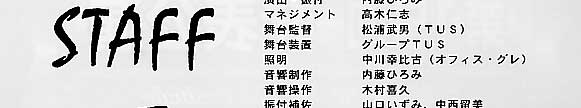 STAFF
演出・振付 内藤ひろみ
マネジメント 高木仁志
舞台監督 松浦武男（TUS）
舞台装置 グループTUS
照明 中川幸比古（オフィス・グレ）
音響制作 内藤ひろみ
音響操作 木村喜久
振付補佐 山口いずみ、中西留美